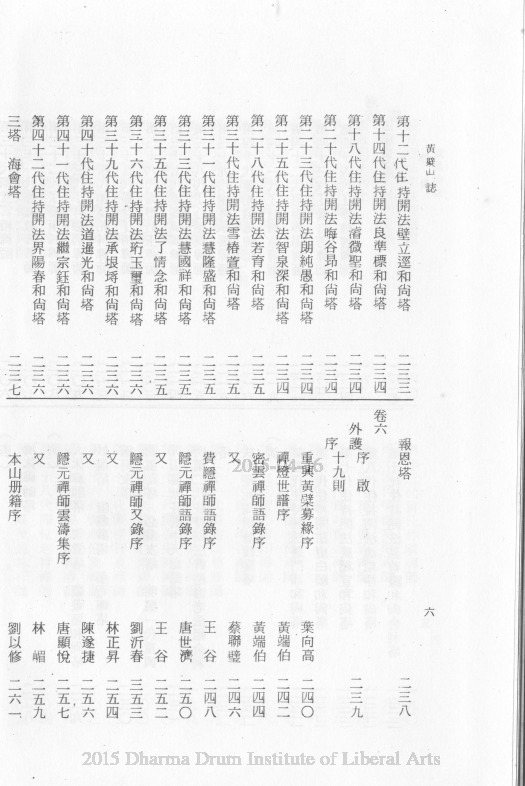 黃檗山誌
第十二代住持開法壁立遥和尙塔 二三三
第十四代住持開法良準標和尙塔 二三四
第十八代住持開法濬微聖和尙塔 二三四
第二十代住持開法晦谷昂和尙塔 二三四
第二十三代住持開法朗純愚和尙塔 二三四
第二十五代住持開法智泉深和尙塔 二三四
第二十八代住持開法若育和尙塔 二三五
第三十代住持開法雪椿萱和尙塔 二三五
第三十一代住持開法慧隆盛和尙塔 二三五
第三十三代住持開法慧國祥和尙塔 二三五
第三十五代住持開法了情念和尙塔 二三五
第三十六代住持開法珩玉璽和尙塔 二三六
第三十九代住持開法承垠堉和尙塔 二三六
第四十代住持開法道暹光和尙塔 二三六
第四十一代住持開法繼宗鈺和尙塔 二三六
第四十二代住持開法界陽春和尙塔 二三六
三塔 海會塔 二三七
六
報恩塔 二三八
卷六
外護序 啟 二三九
序 十九則
重興黃檗募緣序 葉向高 二四〇
禪燈世譜序 黃端伯 二四二
密雲禪師語錄序 黃端伯 二四四
又 蔡聯璧 二四六
費隱禪師語錄序 王 谷 二四八
隱元禪師語錄序 唐世濟 二五〇
又 王 谷 二五二
隱元禪師又錄序 劉沂春 二五三
又 林正昇 二五四
又 陳遂捷 二五六
隱元禪師雲濤集序 唐顯悅 二五七
又 林 嵋 二五九
本山册籍序 劉以修 二六一
2015 Dharma Drum Institute of Liberal Arts